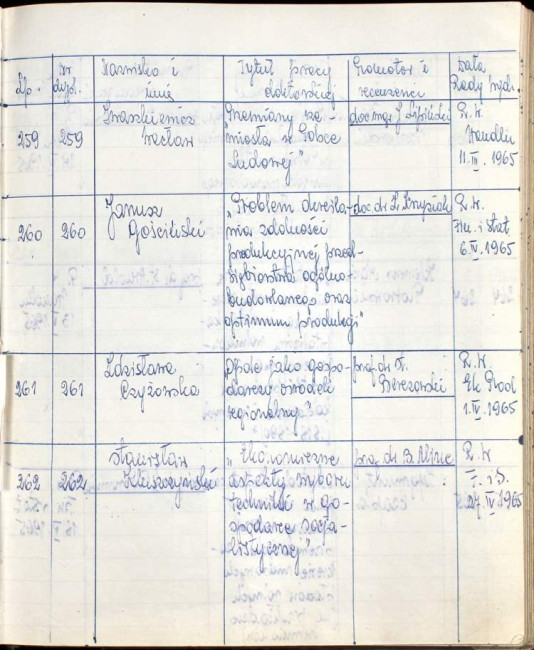 Lp. Nr dypl. Nazwisko i imię Tytuł pracy doktorskiej Promotor i recenzenci Data Rady Wydz.
259 259 Wacław
Przemiany
miasta w Polsce
Ludowej"
doc mgr J.
R. W.
Handlu
11. III. 1965
260 260 Janusz
Gościński
"Problem określa-
nia zdolności
produkcyjnej przed-
siębiorstwa ogólno-
budowlanego oraz
optimum produkcji"
doc. dr L.
R. W.
Fin. i Stat
6. IV. 1965
261 261 Zdzisława
Czyżowska
Opole jako gospo-
darczy ośrodek
regionalny"
prof. dr St.
Berezowski
R. W.
Ek. Prod
1. IV. 1965
262 262 Stanisław
Kluszczyński
"Ekonomiczne
aspekty wyboru
techniki w go-
spodarce socja-
listycznej"
prof. dr B. Minc
R. W
27. IV 1965